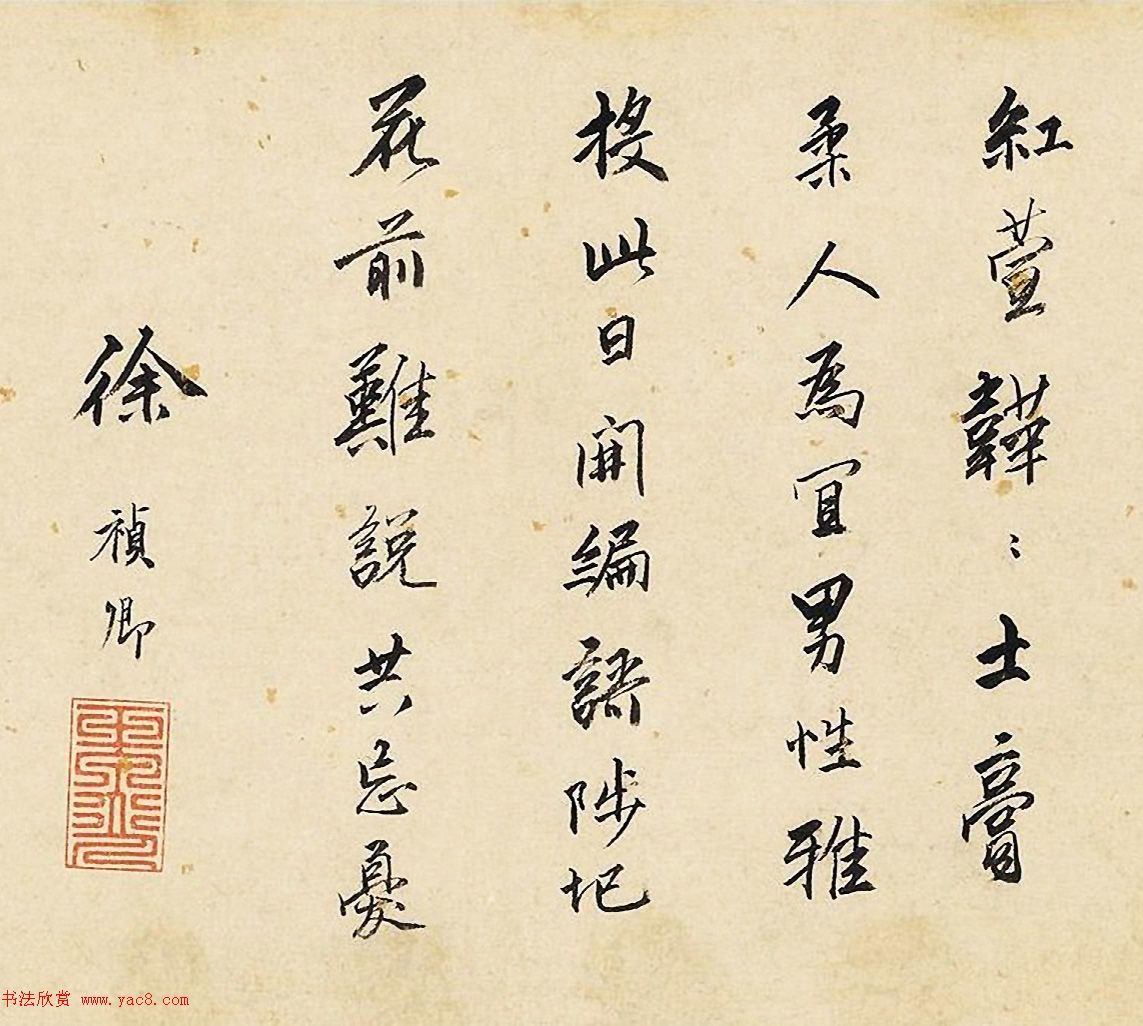 紅萱韡〻土膏
柔人爲宜男性雅
投此日開編語陟圮
花前難說共忘憂
徐禎卿
书法欣赏 www.yac8.com